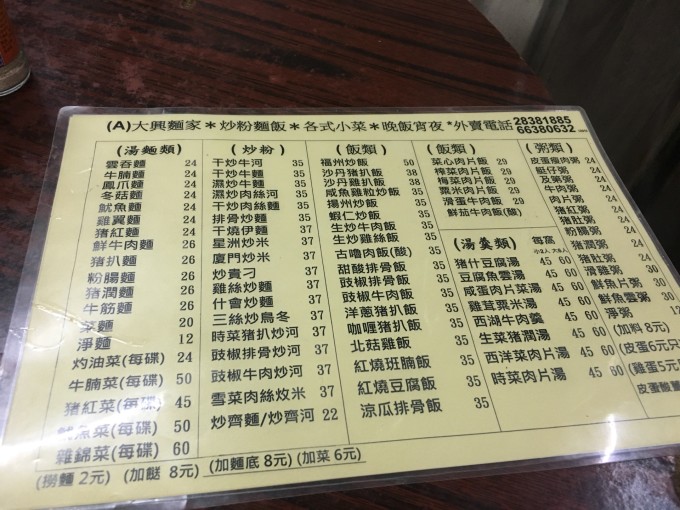 (A)大興麵家＊炒粉麵飯＊各式小菜＊晚飯宵夜*外賣電話 28381885
66380632
(湯麵類)
雲吞麵 24
牛腩麵 24
鳳爪麵 24
冬菇麵 24
魷魚麵 24
雞翼麵 24
猪紅麵 24
鮮牛肉麵 26
猪扒麵 26
粉腸麵 26
猪潤麵 26
牛筋麵 26
菜麵 20
淨麵 12
灼油菜(每碟) 24
牛腩菜(每碟) 50
猪紅菜(每碟) 45
魷魚菜(每碟) 50
雜錦菜(每碟) 60
(炒粉)
干炒牛河 35
干炒牛麵 35
濕炒牛河 35
濕炒肉絲河 35
干炒肉絲麵 35
排骨炒麵 35
干燒伊麵 35
星洲炒米 37
廈門炒米 37
炒貴刁 37
雞絲炒麵 37
什會炒麵 37
三絲炒烏冬 37
時菜猪扒炒河 37
豉椒排骨炒河 37
豉椒牛肉炒河 37
雪菜肉絲炆米 37
炒齋麵/炒齋河 22
(飯類)
福州炒飯 50
沙丹猪扒飯 38
沙丹雞扒飯 38
咸魚雞粒炒飯 35
揚州炒飯 35
蝦仁炒飯 35
生炒牛肉飯 35
生炒雞絲飯 35
古嚕肉飯(酸) 35
甜酸排骨飯 35
豉椒排骨飯 35
豉椒牛肉飯 35
洋蔥猪扒飯 35
咖喱猪扒飯 35
北菇雞飯 35
紅燒班腩飯 35
紅燒豆腐飯 35
涼瓜排骨飯 35
(飯類)
菜心肉片飯 29
榨菜肉片飯 29
梅菜肉片飯 29
粟米肉片飯 29
滑蛋牛肉飯 29
鮮茄牛肉飯(酸)
(湯羹類) 每窩
小2人 大4人
猪什豆腐湯 45 60
豆腐魚雲湯 45 60
咸蛋肉片菜湯 45 60
雞茸粟米湯 45 60
西湖牛肉羹 45 60
生菜猪潤湯 45 60
西洋菜肉片湯 45 60
時菜肉片湯 45 60
(粥類)
皮蛋瘦肉粥 24
艇仔粥 24
及第粥 24
牛肉粥 24
肉片粥 24
猪紅粥 24
猪肚粥 24
粉腸粥 24
猪潤粥 24
滑雞粥 30
鮮魚片粥 30
鮮魚雲粥 30
淨粥 12
(加料 8元)
(皮蛋 6元
(雞蛋 5元
皮蛋酸薑
(撈麵 2元) (加餸 8元) (加麵底 8元) (加菜 6元)